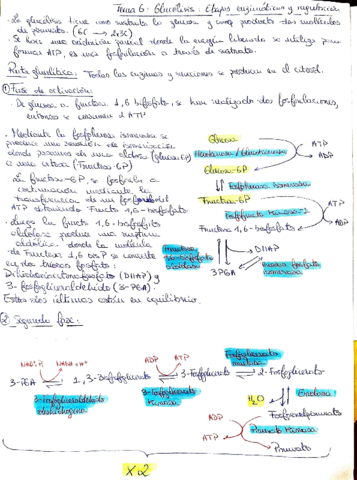 Tema 6: Glucólisis: Etapas enzimáticas y regulación
· La glucólisis tiene como sustrato la glucosa y como producto dos moléculas
de piruvato. (6C → 2x3C)
· Se hace una oxidación parcial donde la energía liberada se utiliza para
formar ATP, es una fosforilación a través de sustrato.
Ruta glucolítica: Todas las enzimas y reacciones se producen en el citosol.
① Fase de activación:
· De glucosa a fructosa 1,6 bifosfato, se han realizado dos fosforilaciones,
entonces se consumen 2 ATP
· Mediante la fosfohexosa isomerasa se
produce una reacción de isomerización
donde pasamos de una aldosa (glucosa 6P)
a una cetosa (Fructosa-6P)
· La fructosa-6P, se fosforila a
continuación mediante la
transferencia de un fosforilo del
ATP obteniendo Fructosa 1,6-bifosfato
· Luego la fructosa 1,6-bifosfato
aldolasa produce una ruptura
aldólica donde la molécula
de Fructosa 1,6 bisP se convierte
en dos triosas fosfato:
Dihidroxiacetona fosfato (DHAP) y
3-fosfogliceraldehído (3-PGA).
Estas dos últimas están en equilibrio.
Glucosa
Hexokinasa / Glucokinasa
ATP
ADP
Glucosa-6P
Fosfohexosa isomerasa
Fructosa-6P
Fosfofructo kinasa-1
ATP
ADP
Fructosa 1,6-bifosfato
Fructosa
1,6-bifosfato
aldolasa
DHAP
3PGA
Triosa fosfato
isomerasa
② Segunda fase:
NAD+, Pi
NADH + H+
ADP
ATP
Fosfoglicerato
mutasa
3-PGA ⇌ 1,3-Bifosfoglicerato ⇌ 3-Fosfoglicerato ⇌ 2-Fosfoglicerato
3-fosfogliceraldehído
deshidrogenasa
3-Fosfoglicerato
kinasa
H2O
Enolasa
Fosfoenolpiruvato
ADP
ATP
Piruvato kinasa
Piruvato
X2